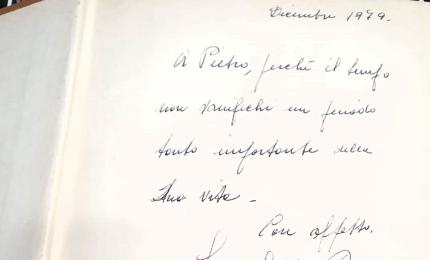 Dicembre 1979.
A Pietro, perché il tempo
non vanifichi un periodo
tanto importante della
sua vita -
Con affetto.